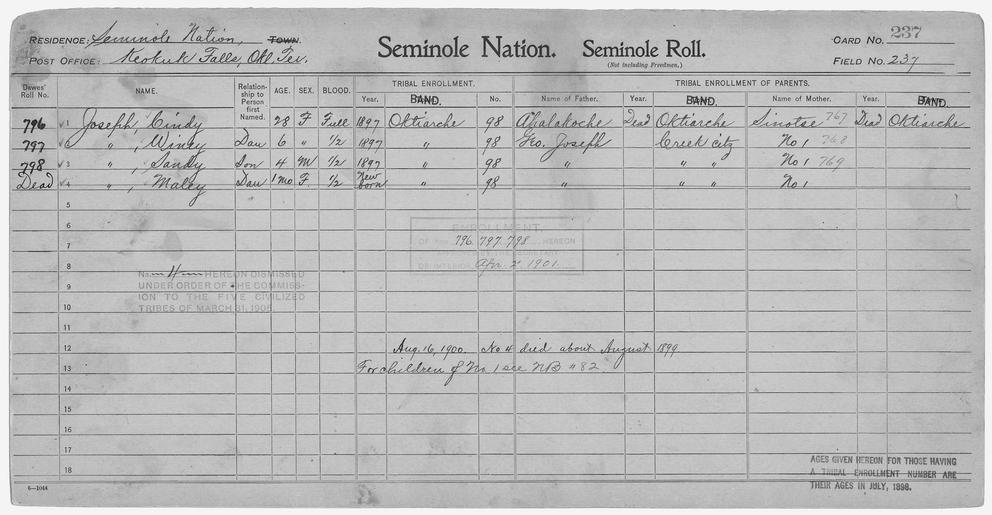 RESIDENCE: Seminole Nation, TOWN. Seminole Nation. Seminole Roll. CARD NO. 237
POST OFFICE: Keokuk Falls, Okl. Ter. (Not including Freedmen.) FIELD NO. 237
Dawes' Roll No. NAME. Relationship to Person first Named. AGE. SEX. BLOOD. TRIBAL ENROLLMENT. TRIBAL ENROLLMENT OF PARENTS.
Year. BAND. No. Name of Father. Year. BAND. Name of Mother. Year. BAND.
796 1 Joseph, Cindy 28 F Full 1897 Oktiarche 98 Dead Oktiarche Sinotse 767 Dead Oktiarche
797 2 " , Winey Dau 6 " 1/2 1897 " 98 Geo. Joseph Creek city No 1 768
798 3 " , Sandy Son 4 M 1/2 1897 " 98 " " " No 1 769
Dead 4 " , Maley Dau 1 mo F. 1/2 New born " 98 " " " No 1
5
6 ENROLLMENT
7 OF NOS. 796. 797. 798 HEREON
8 OF INTERIOR Apr. 2 1901.
No. 4 HEREON DISMISSED
9 UNDER ORDER OF THE COMMISS-
ION TO THE FIVE CIVILIZED
10 TRIBES OF MARCH 31, 1905.
11
12 Aug. 16, 1900. No 4 died about August 1899.
13 For children of No. 1 see NB # 82
14
15
16
17
18
AGES GIVEN HEREON FOR THOSE HAVING
A TRIBAL ENROLLMENT NUMBER ARE
THEIR AGES IN JULY, 1898.
6—1044